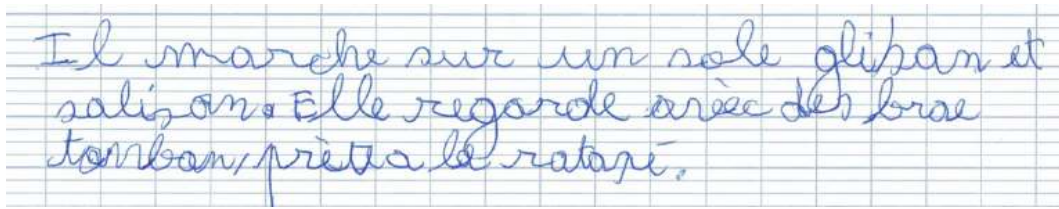 Il marche sur un sole glisan et
salisan. Elle regarde avèc des brae
tomban, prètra la ratapé.